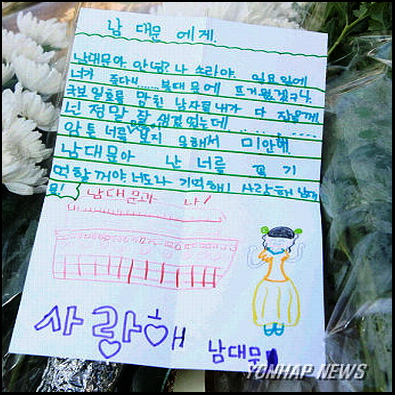 남대문에게.
남대문아 안녕? 나 소라야. 일요일에
너가 죽다니.......불때문에 뜨거웠겠구나.
국보 일호를 망친 남자를 내가 다 잡을께
넌 정말 잘 생겼었는데...........
암튼 너를 잘 보지 못해서 미안해
남대문아 난 너를 꼭 기
억할꺼야 너도 나 기억해! 사랑해 남대
문!
남대문과 나!
사랑해 남대문
YONHAP NEWS